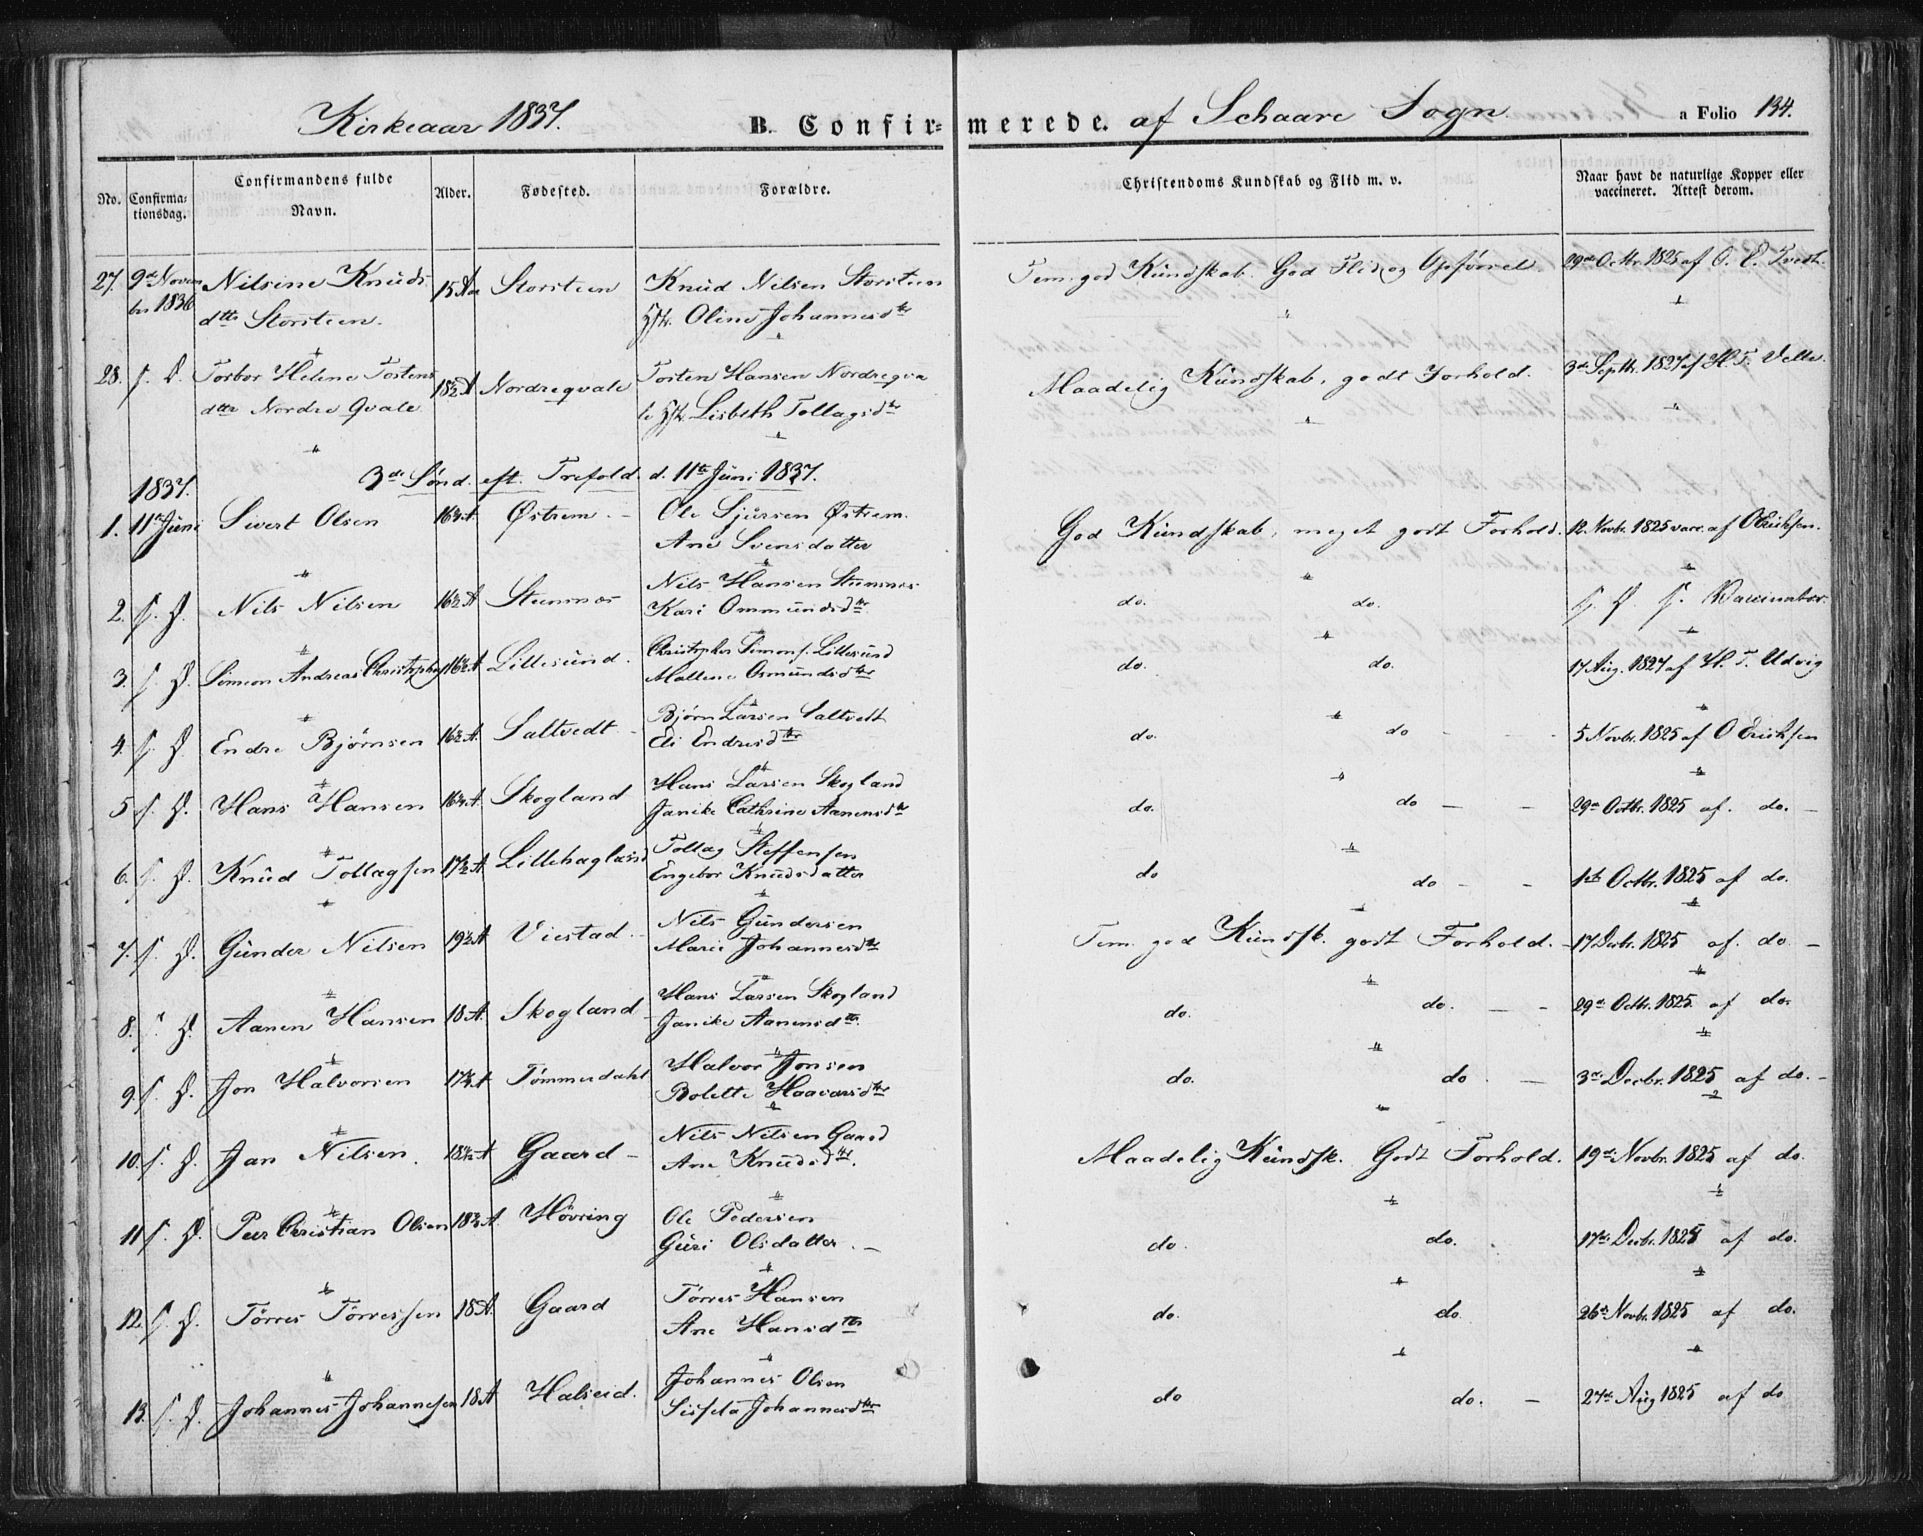 Kirkeaar 1837.
B. Confirmerede. af Schaare Sogn.
a Folio 134.
No.
Confirmationsdag.
Confirmandens fulde Navn.
Alder.
Fødested.
Forældre.
Christendoms Kundskab og Flid m. v.
Naar havt de naturlige Kopper eller vaccineret. Attest derom.
27. 9de Novem Nilsine Knuds 15 Aar Storsteen Knud Nilsen Storsteen Tem. god Kundskab. God Flid og Opførsel 29de Octbr. 1825 af O. E. Tvedt.
ber 1836 dtter Storsteen. Hstr. Oline Johannesdtr
28. s. D. Torbor Helene Tostens 18½ A Nordreqvale Tosten Hansen Nordreqva Maadelig Kundskab, godt Forhold. 3de Septbr. 1827 af H. T. Velle.
dtter Nordre Qvale le Hstr. Lisbeth Tollagsdtr
1837. 3de Sønd. eft. Trefold. d. 11te Juni 1837.
1. 11te Juni Sivert Olsen Østrem. Ole Sjursen Østrem. God Kundskab, meget godt Forhold. 12. Novbr. 1825 vacc. af O Erichsen.
Ane Svensdatter
2. s. D. Nils Nilsen 16½ A Stumnes Nils Hansen Stumnes do. do. s. D. s. Vaccinatør.
Kari Ommundsdtr
3. s. D. Simeon Andreas Christophers 16½ A Lillesund. Christopher Simons. Lillesund do. do. 17 Aug. 1827 af H. T. Udvig
Mallene Osmundsdtr
4. s. D. Endre Bjørnsen 16½ A. Saltvedt Bjørn Larsen Saltvedt do. do 5 Novbr. 1825 af O Erichsen
Eli Endresdtr
5 s. D. Hans Hansen Skogland Hans Larsen Skogland do. do 29de Octbr. 1825 af. do.
Janike Cathrine Aanensdtr
6. s. D. Knud Tollagsen 17½ A. Lillehagland Tollag Steffensen do do 1ste Octbr. 1825 af do.
Engebor Knudsdatter
7. s. D. Gunder Nilsen 19½ A Viestad Nils Gundersen Tem. god Kundsk. godt Forhold. 17 Decbr. 1825 af. do
Marie Johannesdtr
8. s. D. Aanen Hansen 18 A. Skogland Hans Larsen Skogland do. do. 29de Octbr. 1825 af do.
Janike Aanensdtr.
9. s. D. Jon Halvorsen Tømmerdahl Halvor Jonsen do. do. 3de Decbr. 1825 af do.
Bolette Haavarsdtr
10. s. D. Jan Nilsen. Gaard Nils Nilsen Gaard Maadelig Kundsk. Godt Forhold. 19de Novbr. 1825 af do.
Ane Knudsdtr.
11 s. D. Peer Christian Olsen Høvring Ole Pedersen do. do. 17de Decbr. 1825 af do.
Guri Olsdatter.
12. s. D. Tørres Tørressen 18 A. Gaard Tørres Hansen do. do. 26de Novbr. 1825 af do.
Ane Hansdtr
13. s. D. Johannes Johannesen 18 A Halseid. Johannes Olsen do do. 27de Aug 1825 af do
Johannesdtr